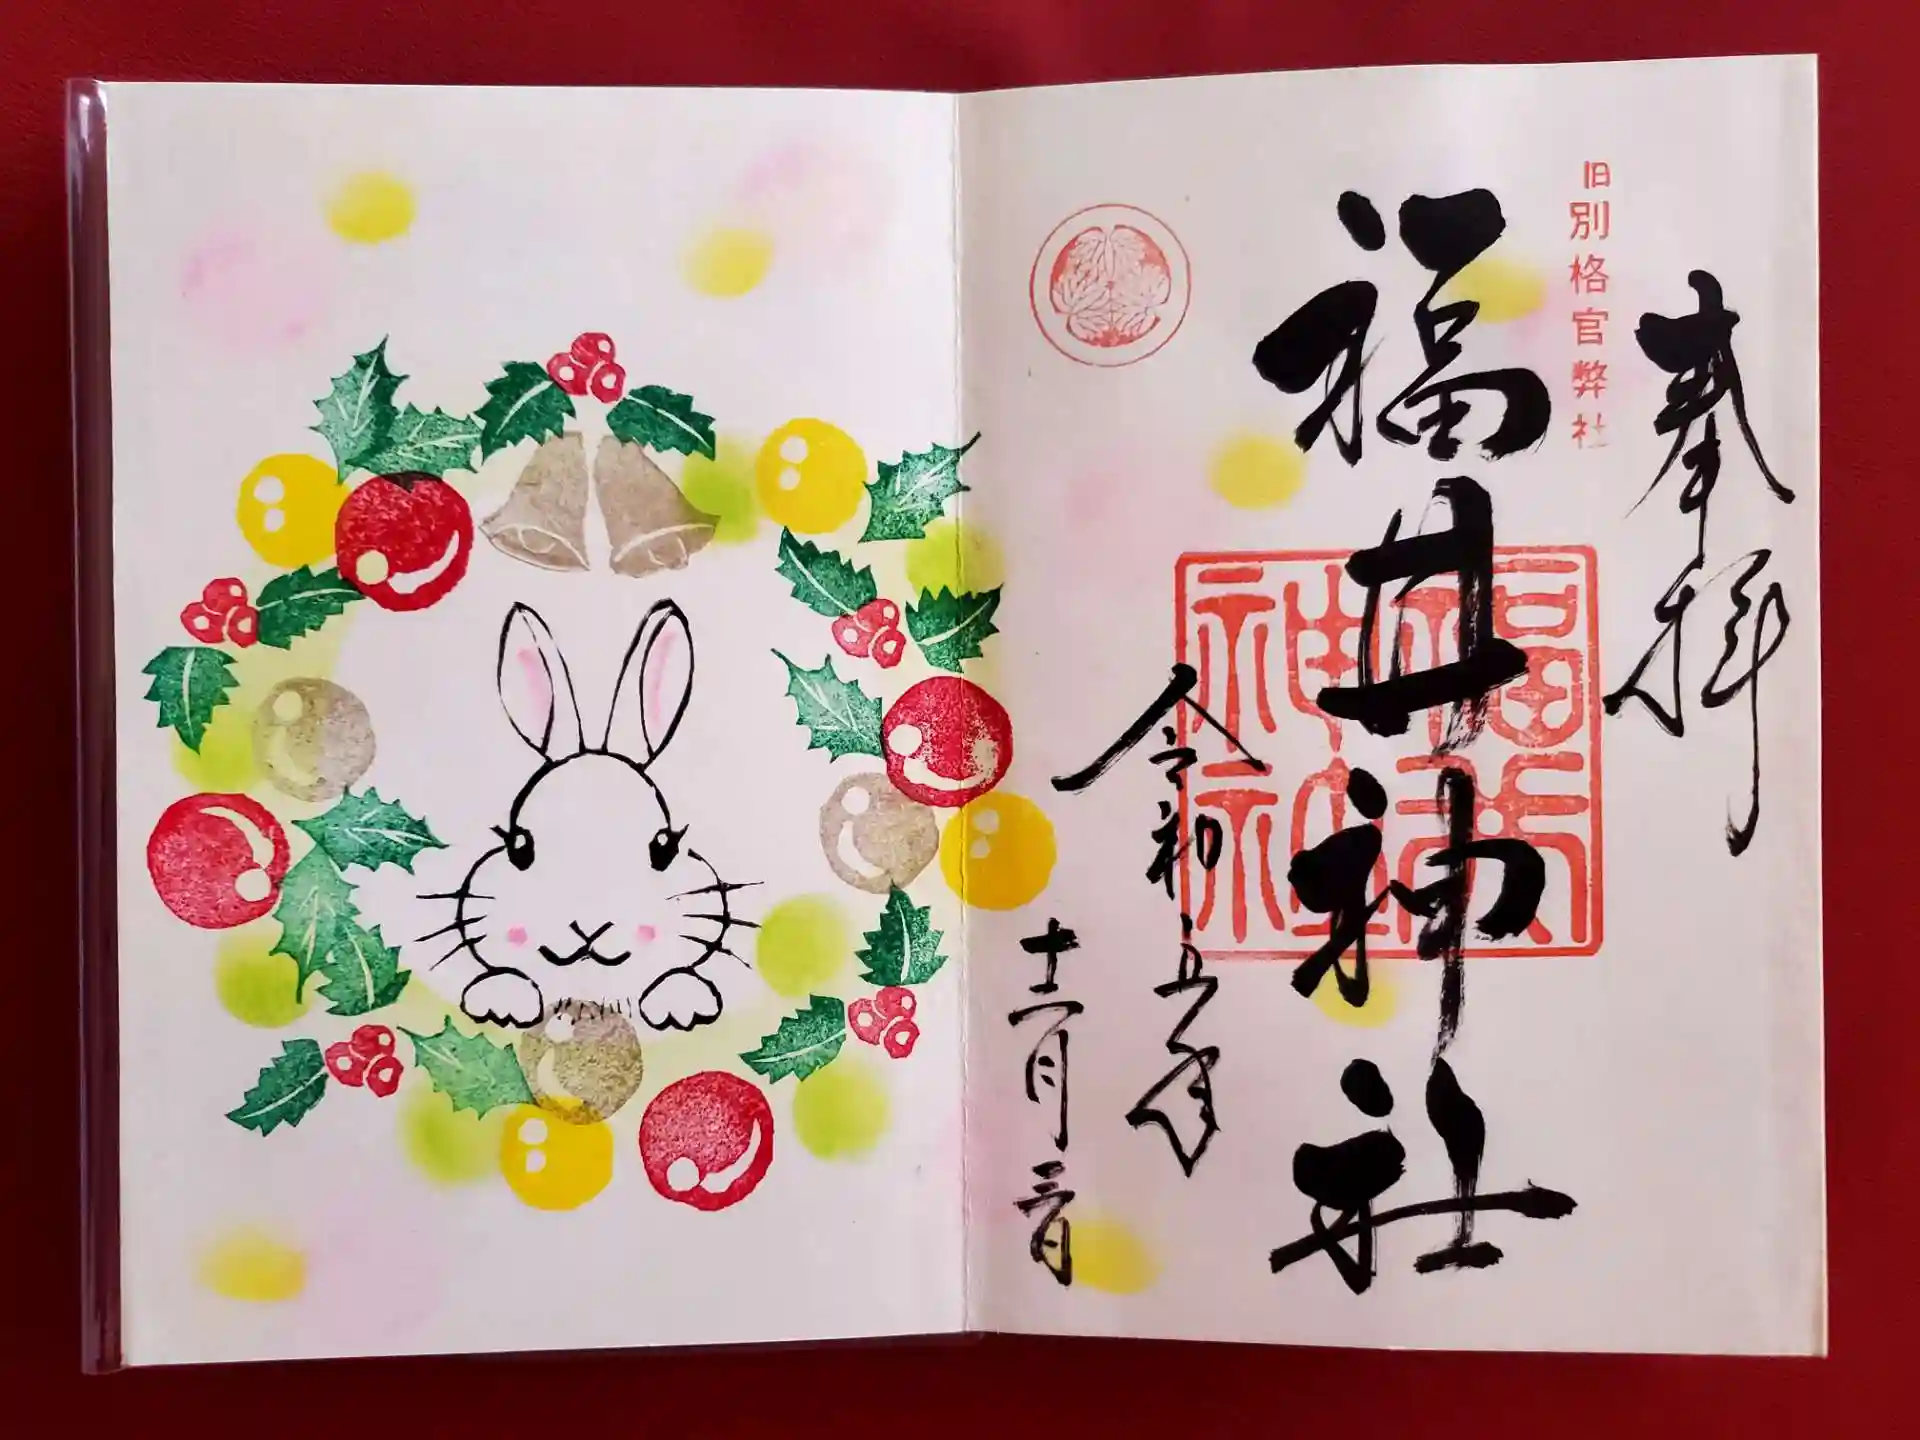 奉拝
旧別格官幣社
福井神社
福井神社
令和五年
十二月三日